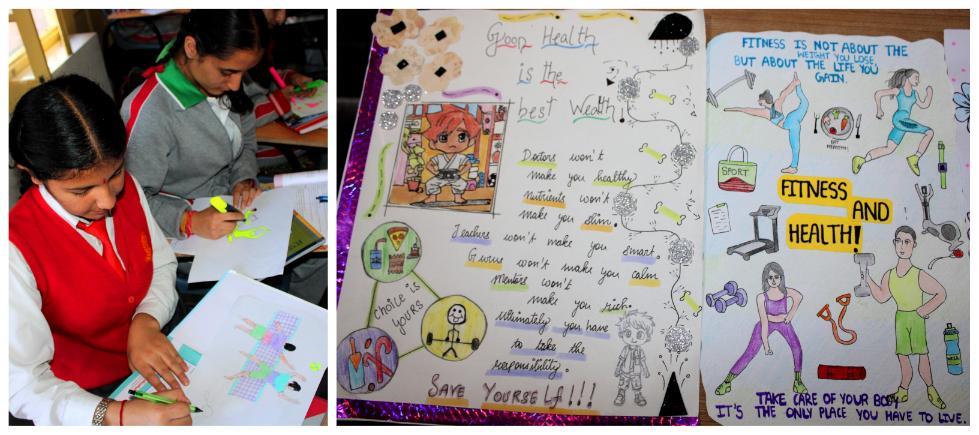 Good Health
is the
best Wealth!
Doctors won't
make you healthy
Nutrients won't
make you slim.
Teachers won't make you smart.
Gurus won't make you calm
Mentors won't
make you rich.
Ultimately you have
to take the
responsibility.
SAVE YOURSELF!!!
CHOICE IS
YOURS
FITNESS IS NOT ABOUT THE
WEIGHT YOU LOSE
BUT ABOUT THE LIFE YOU
GAIN.
EAT
HEALTHY
SPORT
FITNESS
AND
HEALTH!
TAKE CARE OF YOUR BODY
IT'S THE ONLY PLACE YOU HAVE TO LIVE.